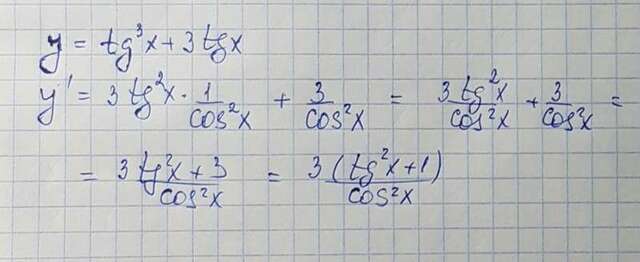 y = tg³x + 3 tgx
y' = 3 tg²x · 1/cos²x + 3/cos²x = 3 tg²x/cos²x + 3/cos²x =
= 3 tg²x + 3/cos²x = 3 (tg²x + 1)/cos²x